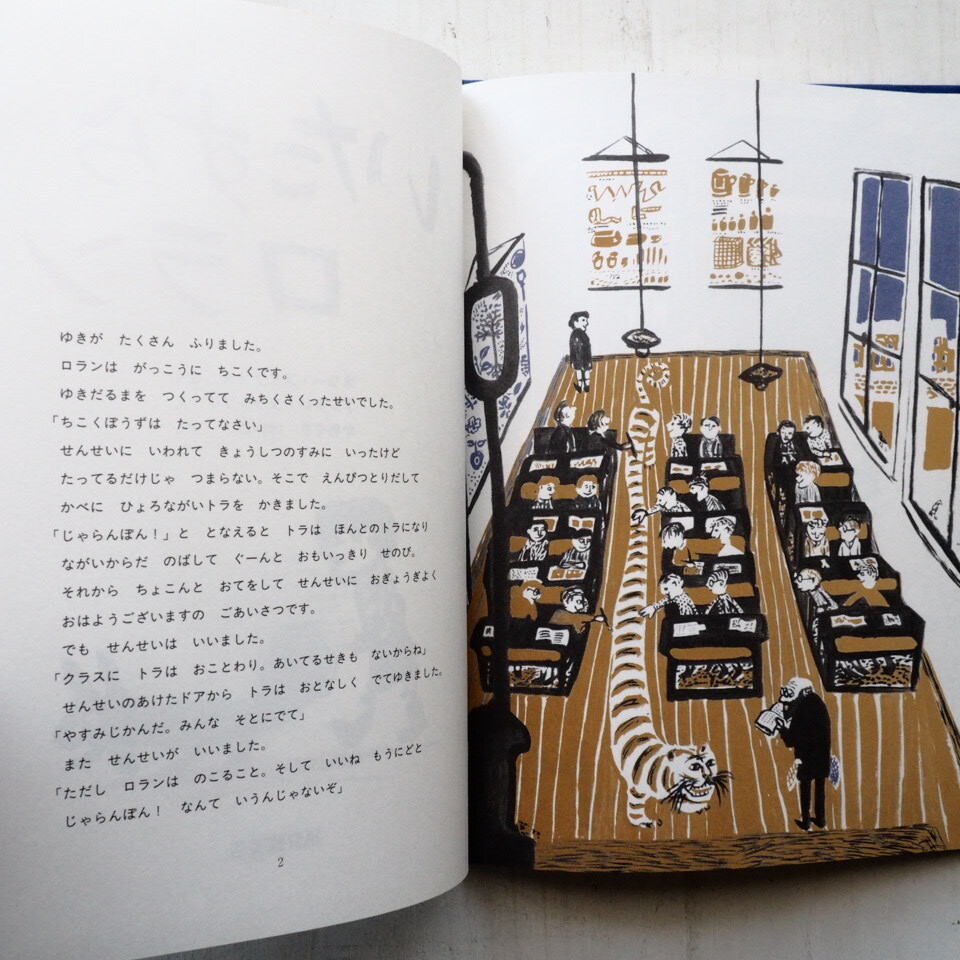 ゆきが　たくさん　ふりました。
ロランは　がっこうに　ちこくです。
ゆきだるまを　つくってて　みちくさくったせいでした。
「ちこくぼうずは　たってなさい」
せんせいに　いわれて　きょうしつのすみに　いったけど
たってるだけじゃ　つまらない。そこで　えんぴつとりだして
かべに　ひょろながいトラを　かきました。
「じゃらんぽん！」と　となえると　トラは　ほんとのトラになり
ながいからだ　のばして　ぐーんと　おもいっきり　せのび。
それから　ちょこんと　おてをして　せんせいに　おぎょうぎよく
おはようございますの　ごあいさつです。
でも　せんせいは　いいました。
「クラスに　トラは　おことわり。あいてるせきも　ないからね」
せんせいのあけたドアから　トラは　おとなしく　でてゆきました。
「やすみじかんだ。みんな　そとにでて」
また　せんせいが　いいました。
「ただし　ロランは　のこること。そして　いいね　もうにどと
じゃらんぽん！　なんて　いうんじゃないぞ」
2